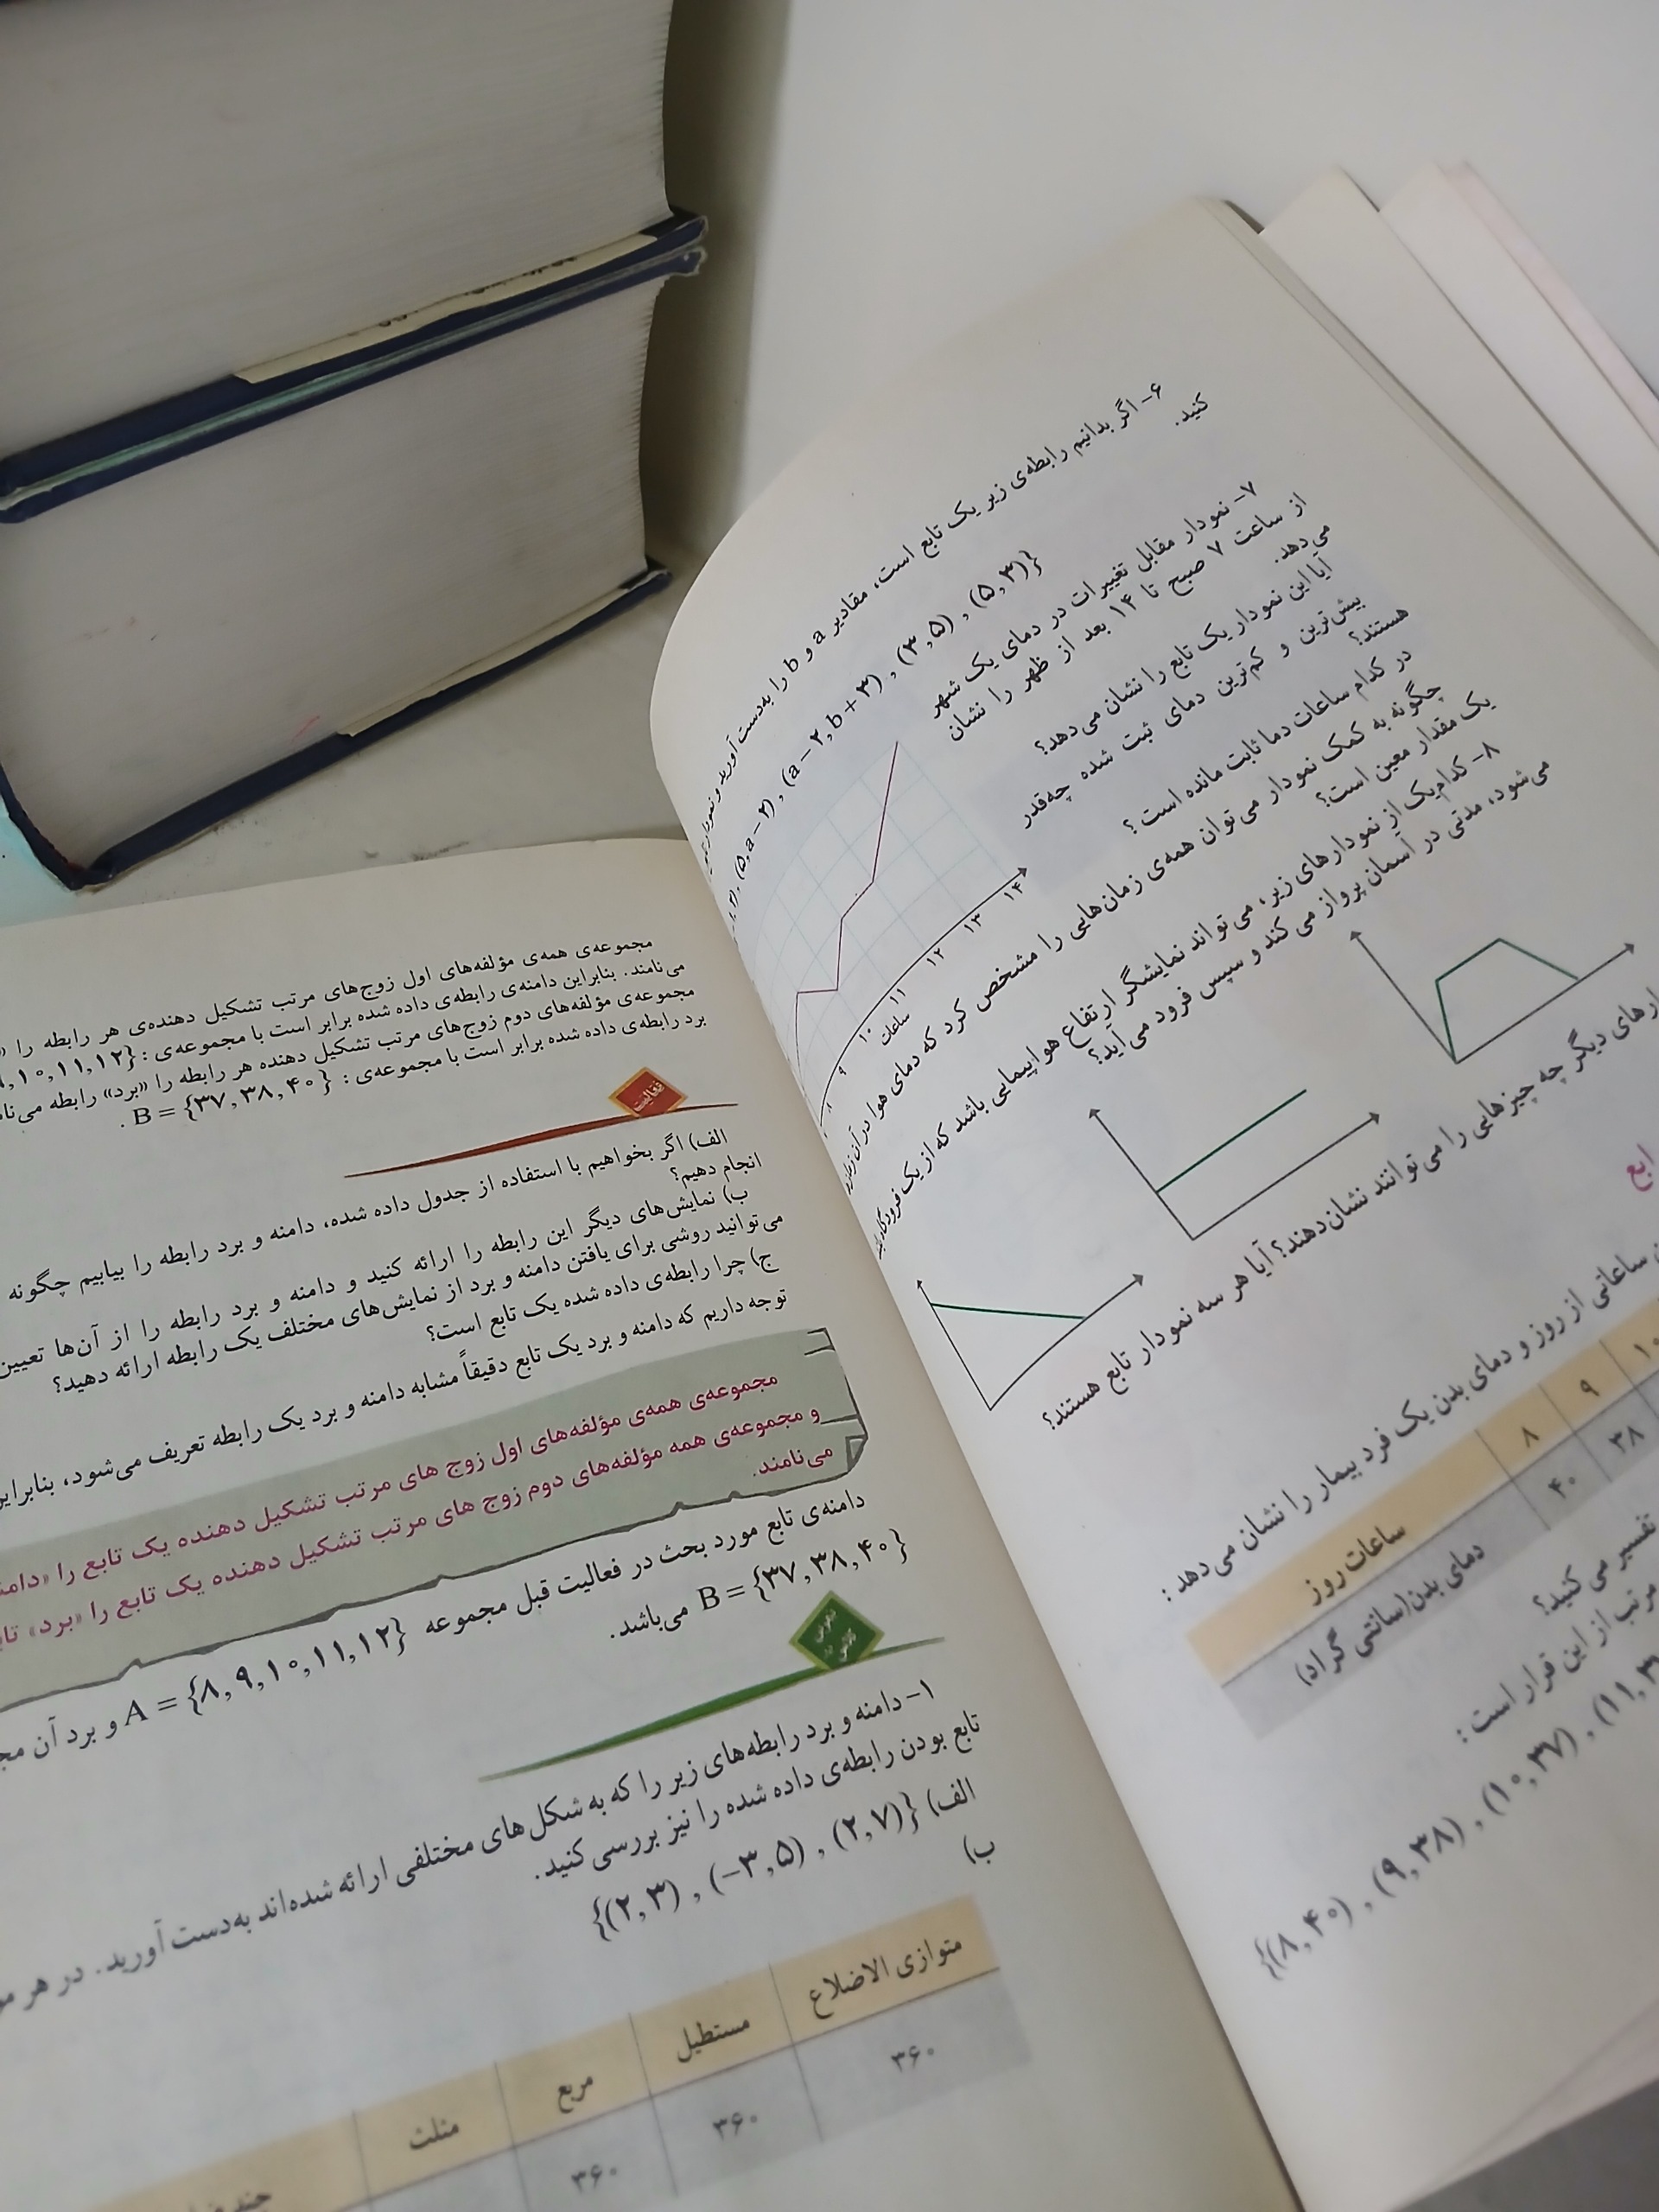 ۶- اگر بدانیم رابطه‌ی زیر یک تابع است، مقادیر a و b را به‌دست آورید و نمودار
کنید.
(۵,a-۲) , (a-۲,b+۳) , (۳,۵) , (۵,۳)}
۷- نمودار مقابل تغییرات در دمای یک شهر
از ساعت ۷ صبح تا ۱۴ بعد از ظهر را نشان
می‌دهد.
آیا این نمودار یک تابع را نشان می‌دهد؟
بیش‌ترین و کم‌ترین دمای ثبت شده چه‌قدر
هستند؟
در کدام ساعات دما ثابت مانده است؟
چگونه به کمک نمودار می‌توان همه‌ی زمان‌هایی را مشخص کرد که دمای هوا در آن
یک مقدار معین است؟
۸ ۹ ۱۰ ۱۱ ۱۲ ۱۳ ۱۴
ساعات
۸- کدام‌یک از نمودارهای زیر، می‌تواند نمایشگر ارتفاع هواپیمایی باشد که از یک فرودگاه
می‌شود، مدتی در آسمان پرواز می‌کند و سپس فرود می‌آید؟
دیگر چه چیزهایی را می‌توانند نشان‌دهند؟ آیا هر سه نمودار تابع هستند؟
ساعاتی از روز و دمای بدن یک فرد بیمار را نشان می‌دهد:
ساعات روز ۸ ۹ ۱۰
دمای بدن(سانتی گراد) ۴۰ ۳۸
تفسیر می کنید؟
مرتب از این قرار است :
{(۸,۴۰) , (۹,۳۸) , (۱۰,۳۷) , (۱۱,۳
مجموعه‌ی همه‌ی مؤلفه‌های اول زوج‌های مرتب تشکیل دهنده‌ی هر رابطه را
می‌نامند. بنابراین دامنه‌ی رابطه‌ی داده شده برابر است با مجموعه‌ی : ,۱۰,۱۱,۱۲}
مجموعه‌ی مؤلفه‌های دوم زوج‌های مرتب تشکیل دهنده هر رابطه را «برد» رابطه
برد رابطه‌ی داده شده برابر است با مجموعه‌ی : B = {۳۷,۳۸,۴۰} .
فعالیت
الف) اگر بخواهیم با استفاده از جدول داده شده، دامنه و برد رابطه را بیابیم چگونه
انجام دهیم؟
ب) نمایش‌های دیگر این رابطه را ارائه کنید و دامنه و برد رابطه را از آن‌ها تعیین
می‌توانید روشی برای یافتن دامنه و برد از نمایش‌های مختلف یک رابطه ارائه دهید؟
ج) چرا رابطه‌ی داده شده یک تابع است؟
توجه داریم که دامنه و برد یک تابع دقیقاً مشابه دامنه و برد یک رابطه تعریف می‌شود، بنابراین
مجموعه‌ی همه‌ی مؤلفه‌های اول زوج های مرتب تشکیل دهنده یک تابع را
و مجموعه‌ی همه مؤلفه‌های دوم زوج های مرتب تشکیل دهنده یک تابع را «برد»
می‌نامند.
دامنه‌ی تابع مورد بحث در فعالیت قبل مجموعه A = {۸,۹,۱۰,۱۱,۱۲} و برد آن
B = {۳۷,۳۸,۴۰} می‌باشد.
تمرین در کلاس
۱- دامنه و برد رابطه‌های زیر را که به شکل‌های مختلفی ارائه شده‌اند به‌دست آورید. در هر
تابع بودن رابطه‌ی داده شده را نیز بررسی کنید.
الف) {(۲,۳) , (-۳,۵) , (۲,۷)}
ب)
متوازی الاضلاع مستطیل مربع مثلث
۳۶۰ ۳۶۰ ۳۶۰